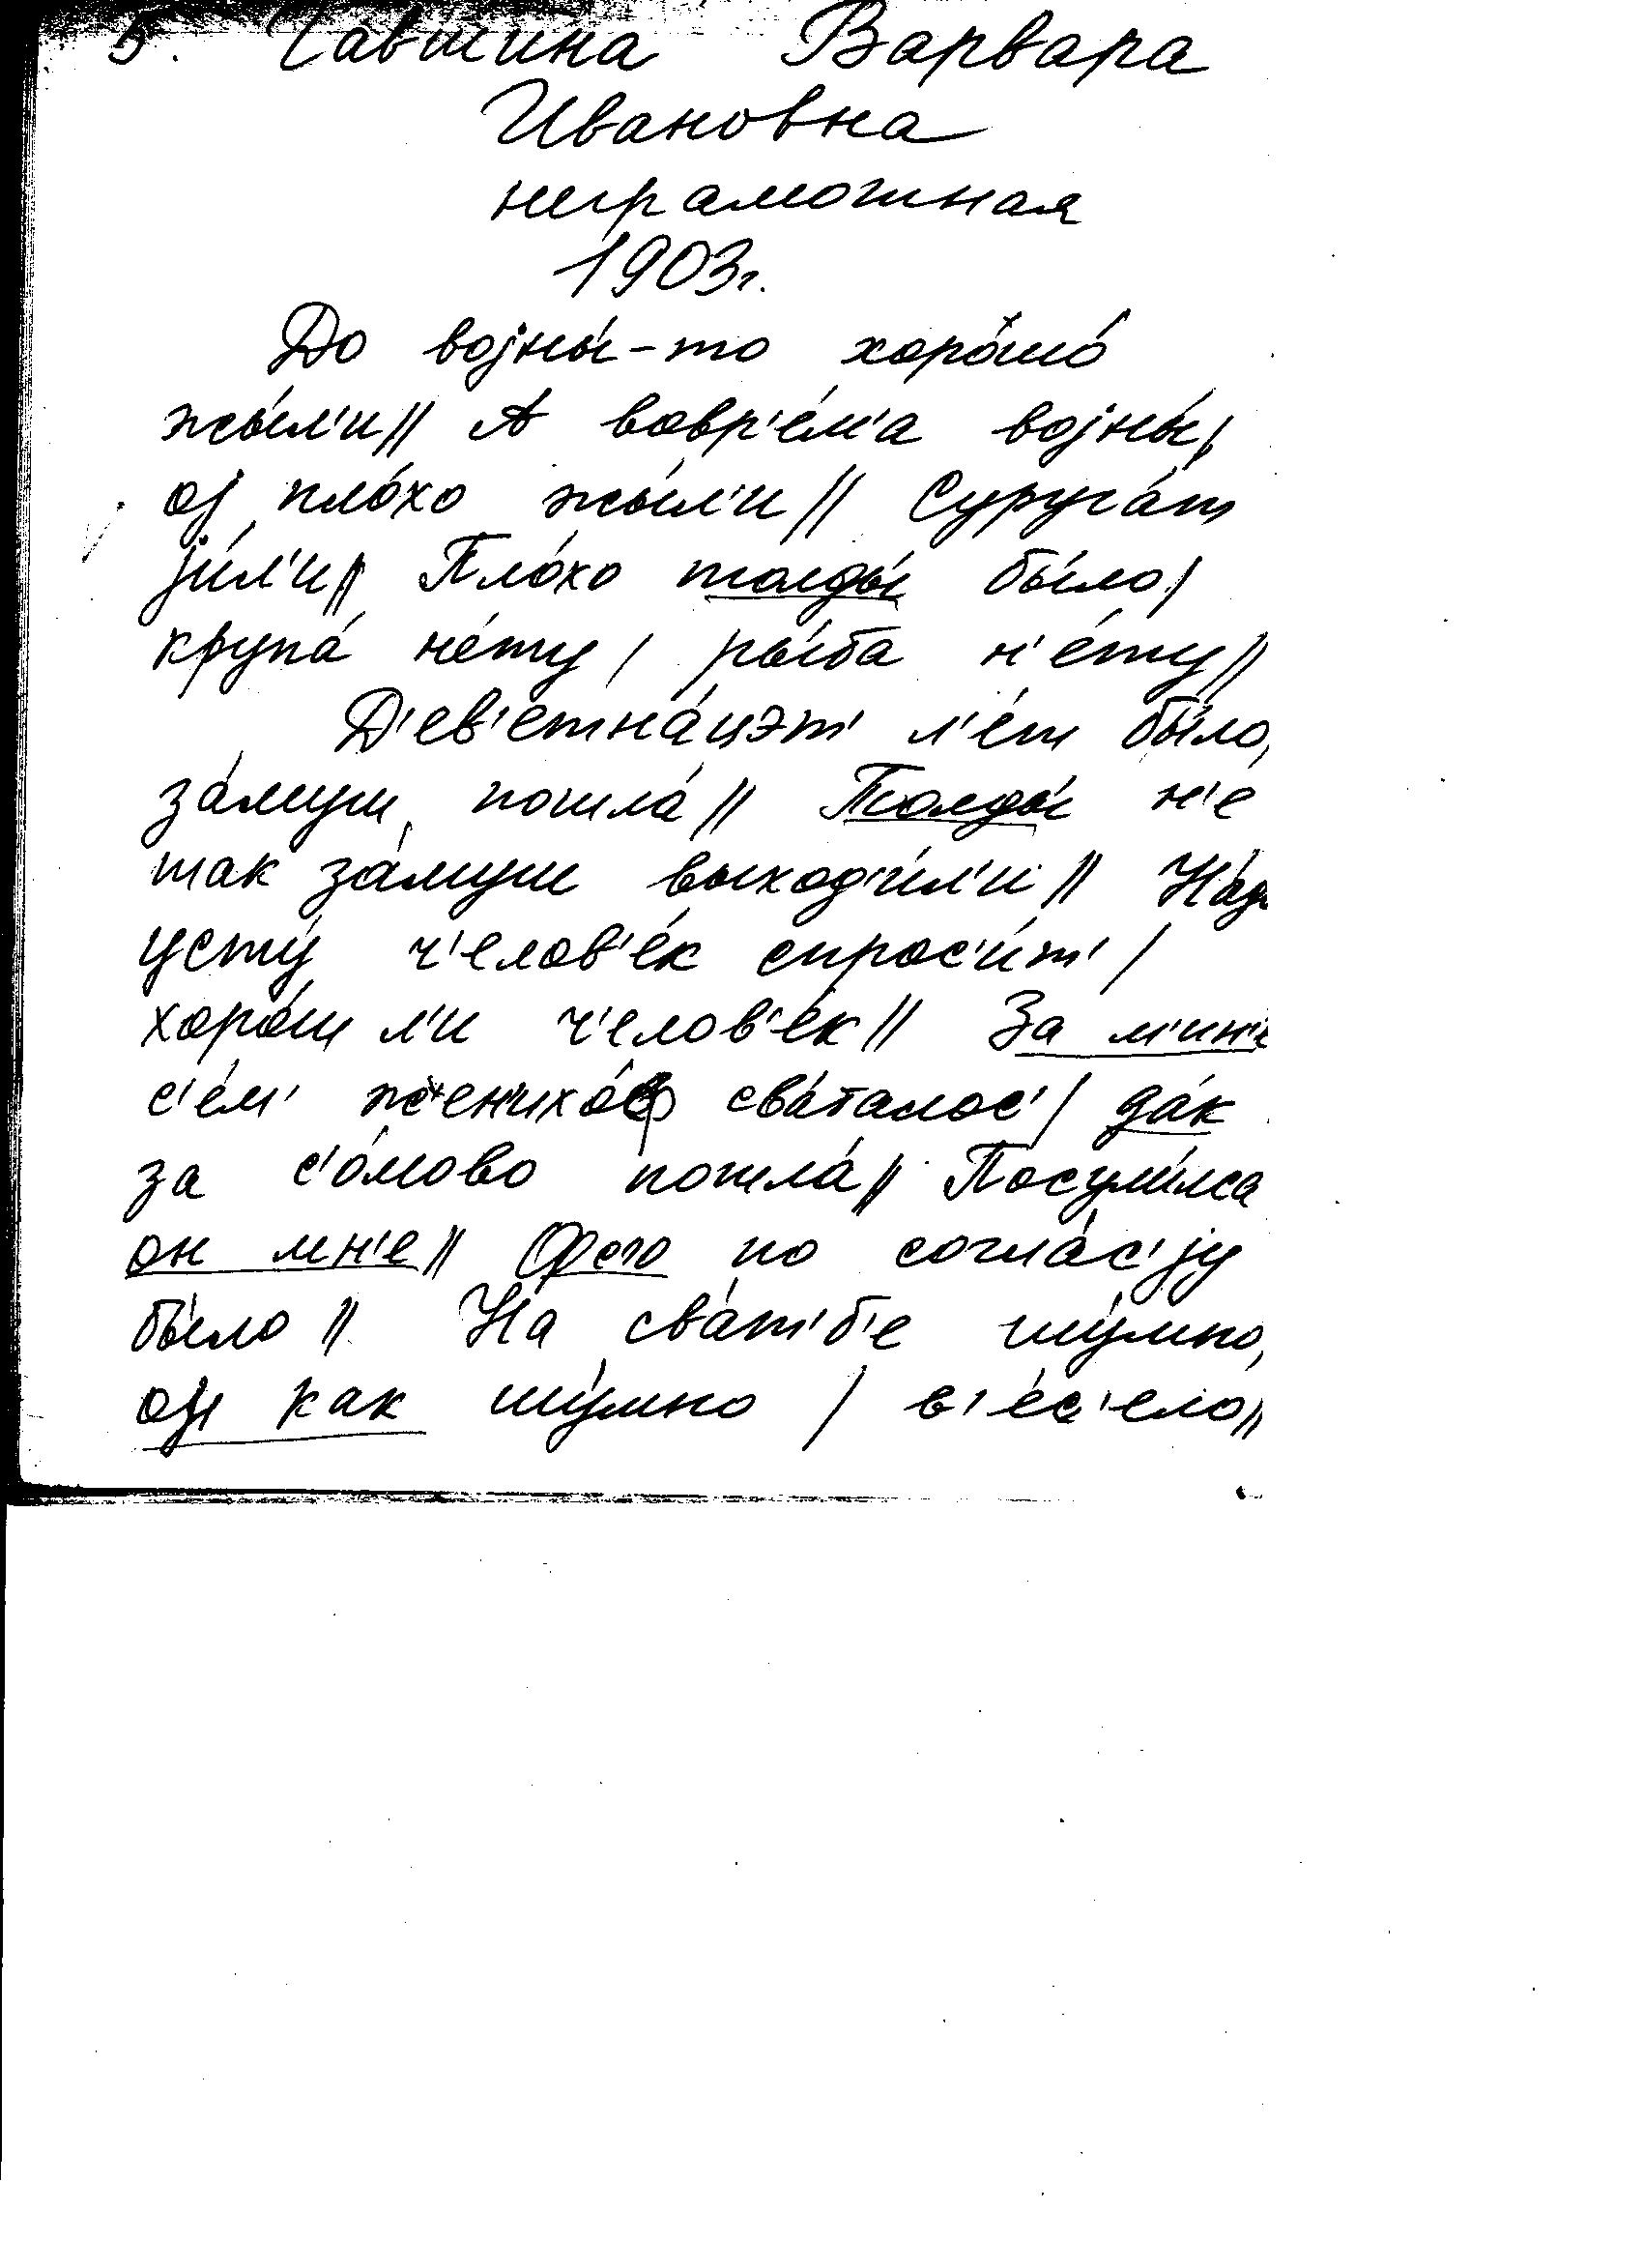 5. Гавшина Варвара
Ивановна
неграмотная
1903г.
До војны́-то хорошо́
жы́л'и// А вовр'е́м'а војны́/
ој пло́хо жы́л'и// Суруга́т
је́л'и// Пло́хо толды́ бы́ло/
крупа́ не́ту / ры́ба н'е́ту//
Д'ев'етна́цэт' л'е́т бы́ло,
за́муш пошла́// Толды́ н'е
так за́муш выход'и́л'и//
усту́ ч'елов'е́к спрос'и́т' /
хоро́ш л'и ч'елов'е́к// За м'ин'
с'е́м' жен'ихо́ сва́талос'/ да́к
за с'о́мово пошла́// Посули́лса
он мн'е// по согла́с'јy
бы́ло // На сва́т'б'е шу́мно,
ој как шу́мно / в'е́с'ело//